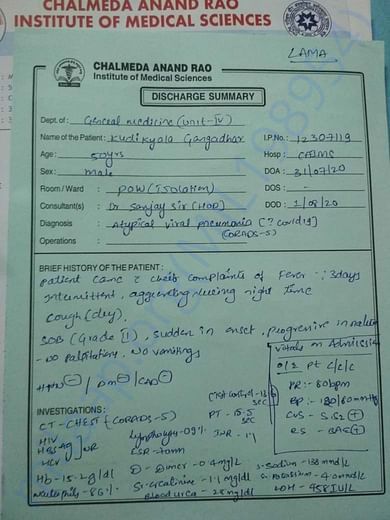 CHALMEDA ANAND RAO
INSTITUTE OF MEDICAL SCIENCES
LAMA
CHALMEDA ANAND RAO
Institute of Medical Sciences
DISCHARGE SUMMARY
Dept. of : General medicine (unit-IV)
Name of the Patient : Kudikyala Gangadhar I.P.No. : 12307119
Age : 50yrs Hosp : CAIMS
Sex : male DOA : 31/07/20
Room / Ward : POW (isolation) DOS : -
Consultant(s) : Dr Sanjay Sir (HOD) DOD : 1/08/20
Diagnosis : Atypical viral pneumonia (? covid19)
(CORADS-5)
Operations :
BRIEF HISTORY OF THE PATIENT :
patient came c chief complaints of Fever :: 3days
intermittent, during night time
cough (dry).
SOB (Grade II), sudden in onset, progressive in nature
- No palpitations, No vomitings
HTN - / DM - / CAD -
vitals on Admission
o/e Pt c/c/c
PR :- 80bpm
BP :- 120/80mmHg
CVS - S1S2 +
RS - BAE +
INVESTIGATIONS :
CT - CHEST (CORADS-5) PT - 15.5 sec
HIV
HBsAg NR
HCV
lymphocytes - 09% INR - 1.1
ESR - 70mm
Hb - 15.2 g/dl D - Dimer - 0.4mg/L S. Sodium - 138 mmol/L
Neutrophils - 86% Sr. creatinine - 1.1 mg/dl S. potassium - 4.0 mmol/L
Blood urea - 28 mg/dl LDH - 458 IU/L